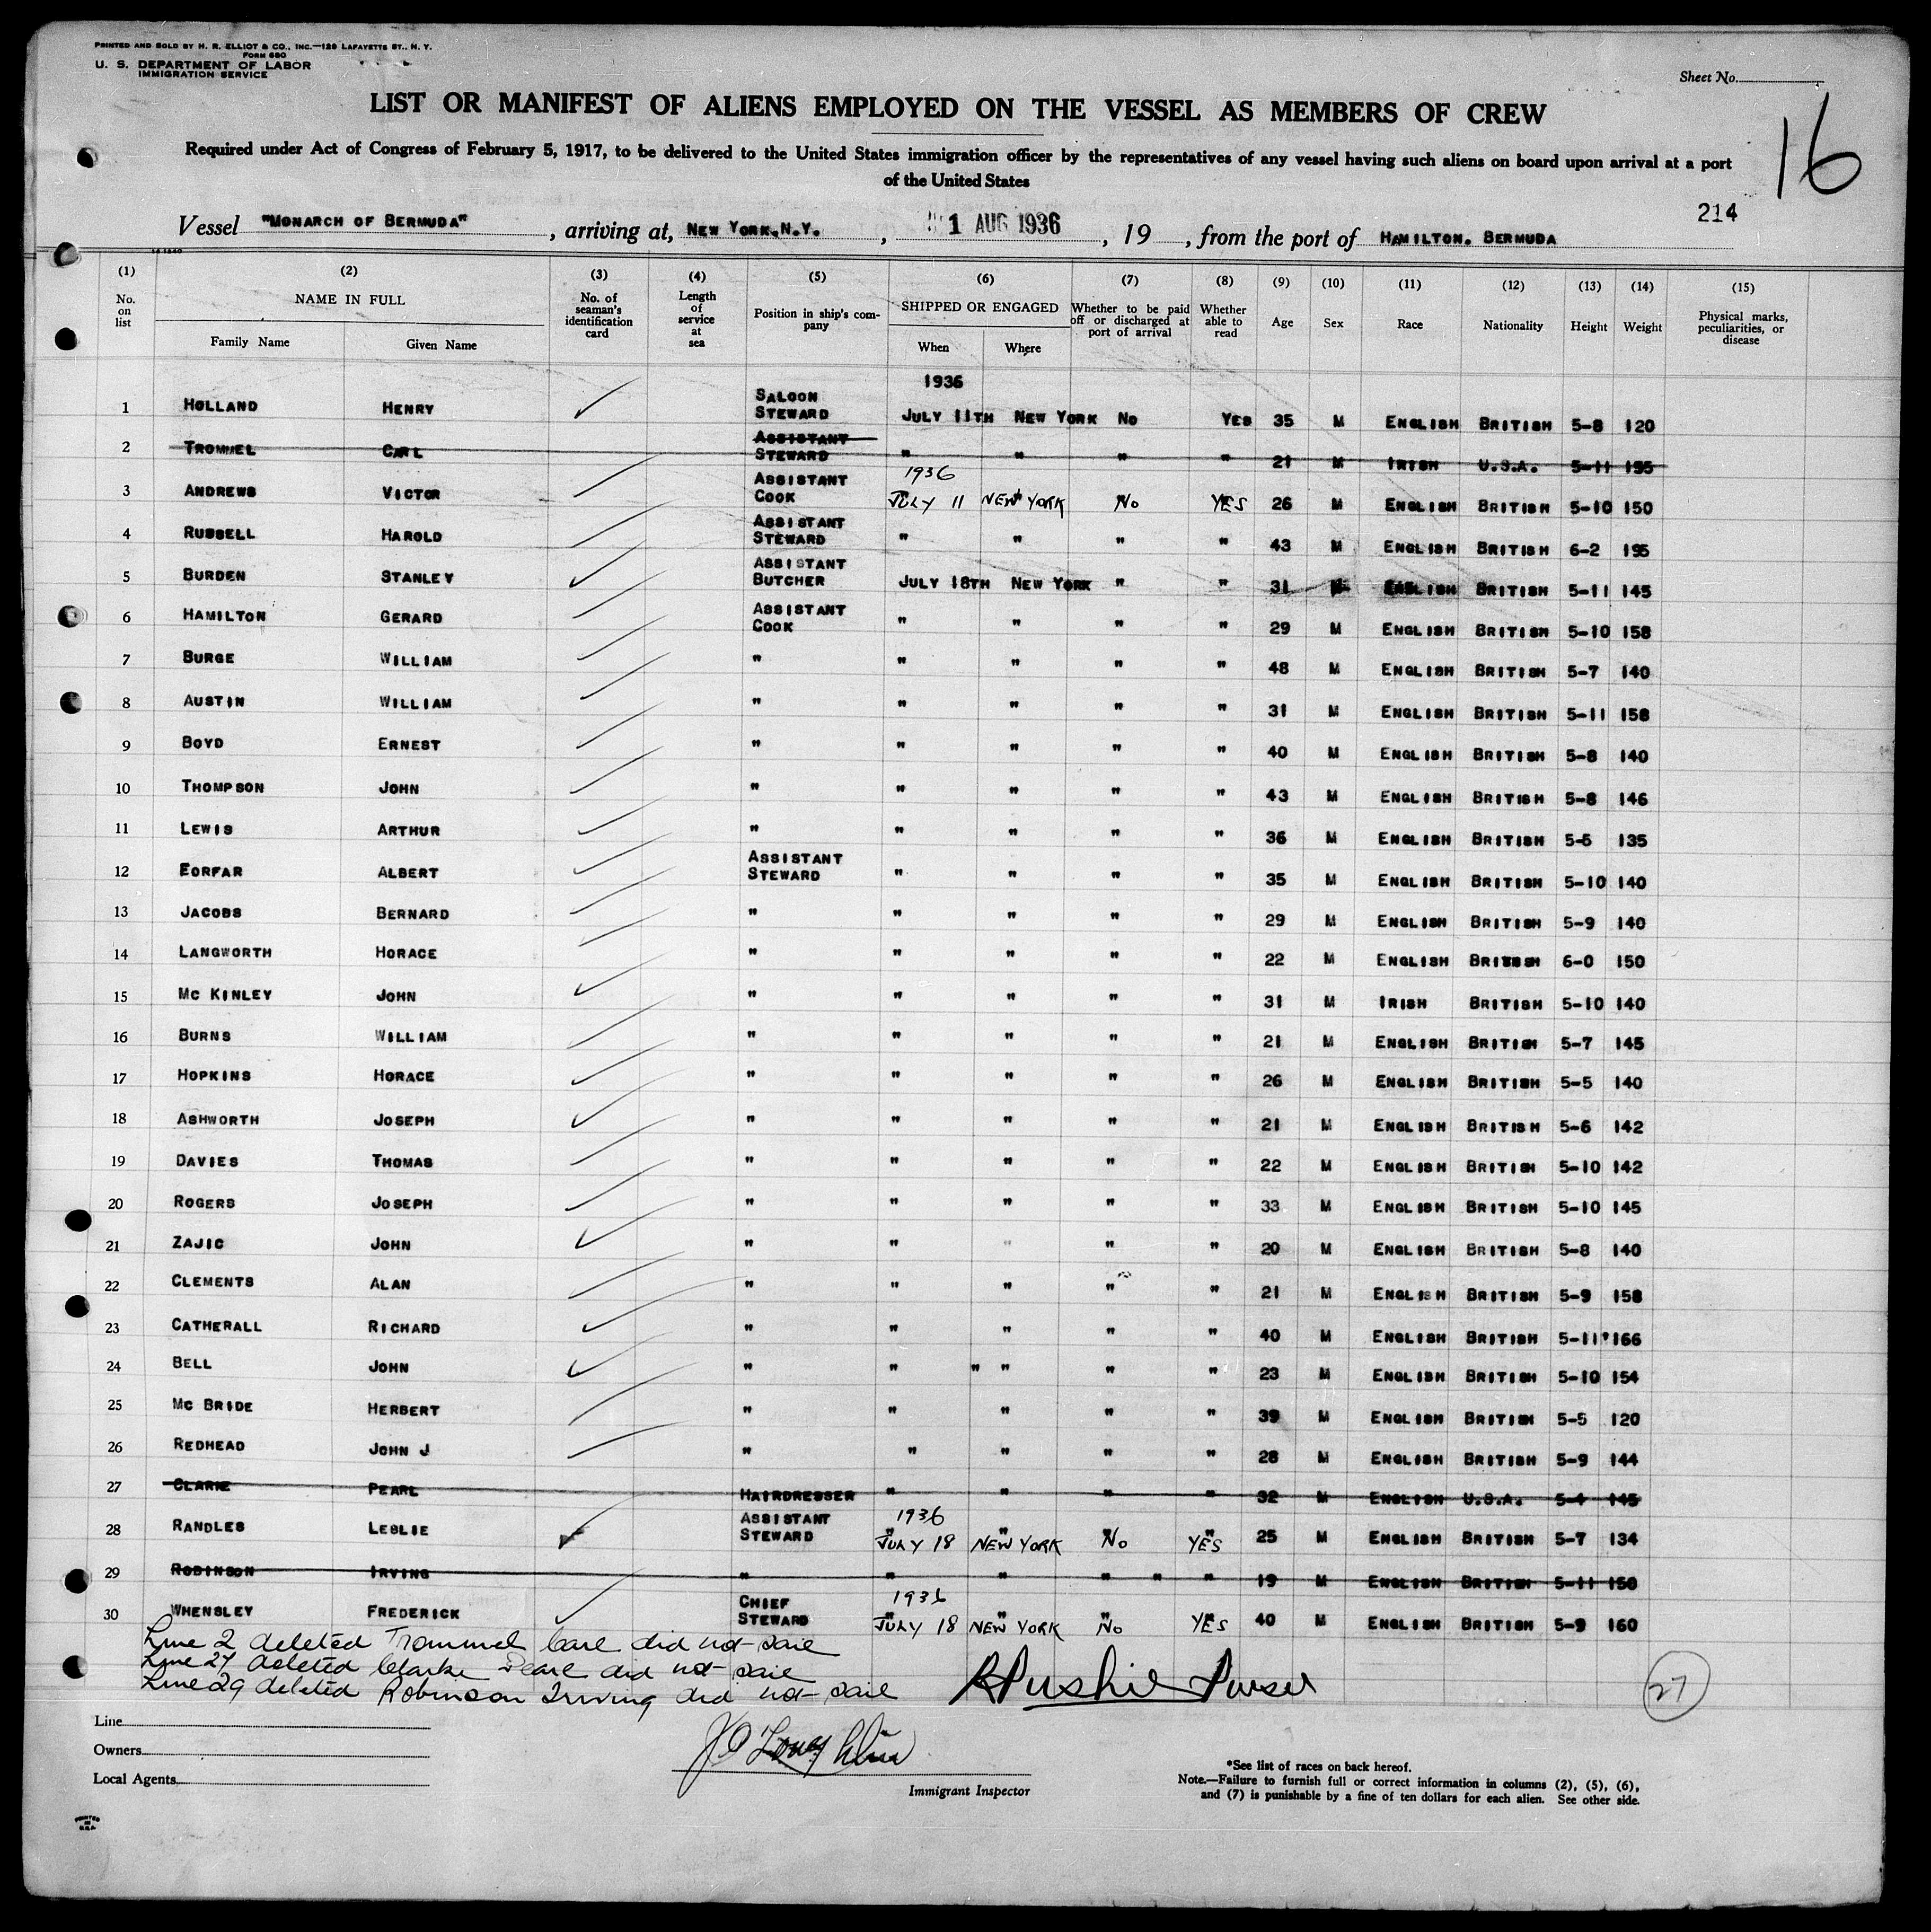 PRINTED AND SOLD BY H. R. ELLIOT & CO., INC.—129 LAFAYETTE ST., N. Y.
FORM 680
U. S. DEPARTMENT OF LABOR
IMMIGRATION SERVICE
Sheet No.
LIST OR MANIFEST OF ALIENS EMPLOYED ON THE VESSEL AS MEMBERS OF CREW
16
Required under Act of Congress of February 5, 1917, to be delivered to the United States immigration officer by the representatives of any vessel having such aliens on board upon arrival at a port
of the United States
214
Vessel "MONARCH OF BERMUDA", arriving at, NEW YORK.N.Y., 1 AUG 1936, 19 , from the port of HAMILTON. BERMUDA
(1) (2) (3) (4) (5) (6) (7) (8) (9) (10) (11) (12) (13) (14) (15)
No. on list NAME IN FULL Family Name Given Name No. of seaman's identification card Length of service at sea Position in ship's company SHIPPED OR ENGAGED When Where Whether to be paid off or discharged at port of arrival Whether able to read Age Sex Race Nationality Height Weight Physical marks, peculiarities, or disease
1936
1 HOLLAND HENRY SALOON STEWARD JULY 11TH NEW YORK NO YES 35 M ENGLISH BRITISH 5-8 120
2 TROMMEL CARL ASSISTANT STEWARD " " " " 21 M IRISH U.S.A. 5-11 195
3 ANDREWS VICTOR ASSISTANT COOK 1936 JULY 11 NEW YORK No YES 26 M ENGLISH BRITISH 5-10 150
4 RUSSELL HAROLD ASSISTANT STEWARD " " " " 43 M ENGLISH BRITISH 6-2 195
5 BURDEN STANLEY ASSISTANT BUTCHER JULY 18TH NEW YORK " " 31 M ENGLISH BRITISH 5-11 145
6 HAMILTON GERARD ASSISTANT COOK " " " " 29 M ENGLISH BRITISH 5-10 158
7 BURGE WILLIAM " " " " " 48 M ENGLISH BRITISH 5-7 140
8 AUSTIN WILLIAM " " " " " 31 M ENGLISH BRITISH 5-11 158
9 BOYD ERNEST " " " " " 40 M ENGLISH BRITISH 5-8 140
10 THOMPSON JOHN " " " " " 43 M ENGLISH BRITISH 5-8 146
11 LEWIS ARTHUR " " " " " 36 M ENGLISH BRITISH 5-6 135
12 EORFAR ALBERT ASSISTANT STEWARD " " " " 35 M ENGLISH BRITISH 5-10 140
13 JACOBS BERNARD " " " " " 29 M ENGLISH BRITISH 5-9 140
14 LANGWORTH HORACE " " " " " 22 M ENGLISH BRITISH 6-0 150
15 MC KINLEY JOHN " " " " " 31 M IRISH BRITISH 5-10 140
16 BURNS WILLIAM " " " " " 21 M ENGLISH BRITISH 5-7 145
17 HOPKINS HORACE " " " " " 26 M ENGLISH BRITISH 5-5 140
18 ASHWORTH JOSEPH " " " " " 21 M ENGLISH BRITISH 5-6 142
19 DAVIES THOMAS " " " " " 22 M ENGLISH BRITISH 5-10 142
20 ROGERS JOSEPH " " " " " 33 M ENGLISH BRITISH 5-10 145
21 ZAJIC JOHN " " " " " 20 M ENGLISH BRITISH 5-8 140
22 CLEMENTS ALAN " " " " " 21 M ENGLISH BRITISH 5-9 158
23 CATHERALL RICHARD " " " " " 40 M ENGLISH BRITISH 5-11 166
24 BELL JOHN " " " " " " 23 M ENGLISH BRITISH 5-10 154
25 MC BRIDE HERBERT " " " " " 39 M ENGLISH BRITISH 5-5 120
26 REDHEAD JOHN J " " " " " 28 M ENGLISH BRITISH 5-9 144
27 CLARKE PEARL HAIRDRESSER " " " " 32 M ENGLISH U.S.A. 5-4 145
28 RANDLES LESLIE ASSISTANT STEWARD 1936 JULY 18 NEW YORK No YES 25 M ENGLISH BRITISH 5-7 134
29 ROBINSON IRVING " " " " " " 19 M ENGLISH BRITISH 5-11 150
30 WHENSLEY FREDERICK CHIEF STEWARD 1936 JULY 18 NEW YORK No YES 40 M ENGLISH BRITISH 5-9 160
Line 2 deleted Trommel Carl did not sail
Line 27 deleted Clarke Pearl did not sail
Line 29 deleted Robinson Irving did not sail
Purser
27
Line
Owners
Local Agents
Immigrant Inspector
*See list of races on back hereof.
Note.—Failure to furnish full or correct information in columns (2), (5), (6),
and (7) is punishable by a fine of ten dollars for each alien. See other side.
PRINTED IN U.S.A.